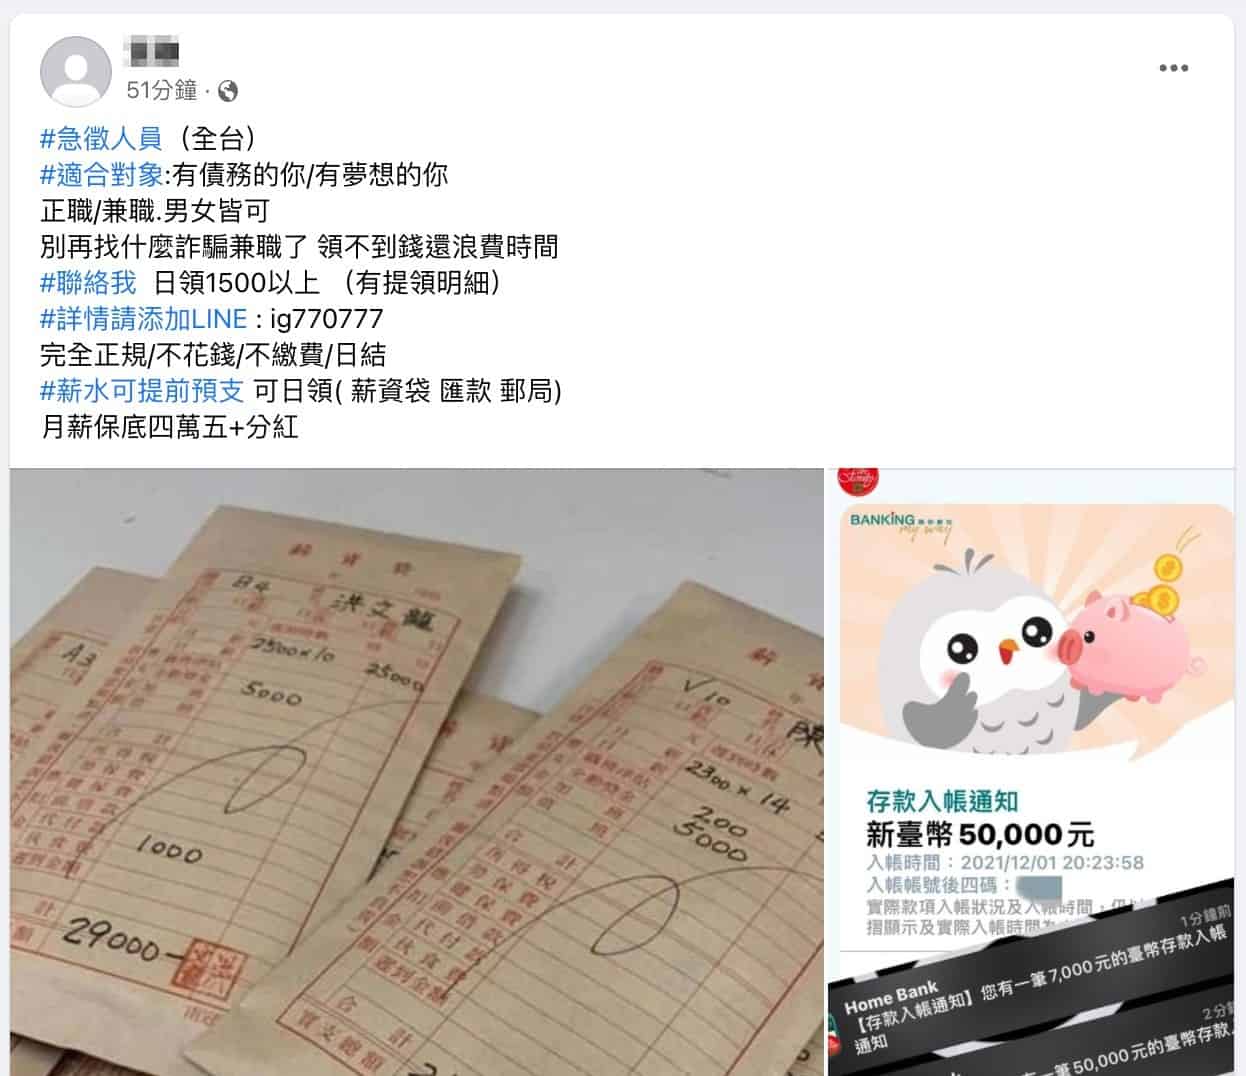 51分鐘
#急徵人員（全台）
#適合對象:有債務的你/有夢想的你
正職/兼職.男女皆可
別再找什麼詐騙兼職了 領不到錢還浪費時間
#聯絡我 日領1500以上 （有提領明細）
#詳情請添加LINE : ig770777
完全正規/不花錢/不繳費/日結
#薪水可提前預支 可日領( 薪資袋 匯款 郵局)
月薪保底四萬五+分紅
薪資袋
B4 洪文龍
2500×10 25000
5000
1000
29000-
A3
薪資
V10 陳
2300×14
200
5000
合計
實支總額
BANKING
my way
存款入帳通知
新臺幣 50,000 元
入帳時間：2021/12/01 20:23:58
入帳帳號後四碼：
實際款項入帳狀況及入帳時間，仍以
摺顯示及實際入帳時間為
1分鐘前
Home Bank
【存款入帳通知】您有一筆7,000元的臺幣存款入帳
通知
2分鐘
有一筆50,000元的臺幣存款